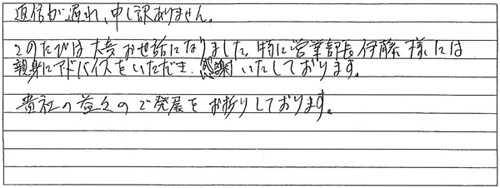 返信が遅れ、申し訳ありません。
このたびは大変お世話になりました。特に営業部長伊藤様には
親身にアドバイスをいただき、感謝いたしております。
貴社の益々のご発展をお祈りしております。